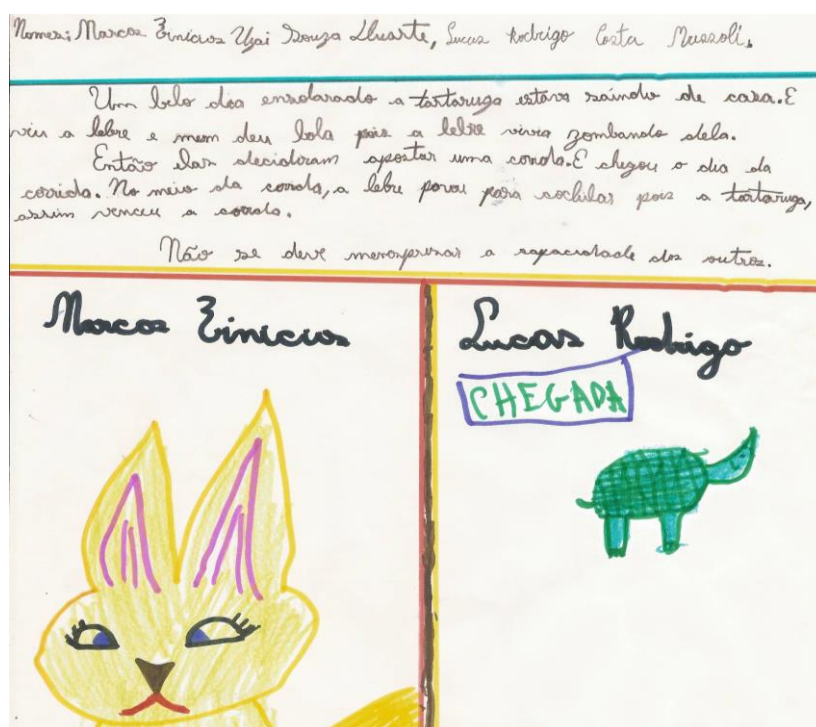 Nomes: Marcos Vinicius Uzai Souza Duarte, Lucas Rodrigo Costa Mussoli.
Um belo dia ensolarado a tartaruga estava saindo de casa. E
viu a lebre e nem deu bola pois a lebre vivia zombando dela.
Então elas decidiram apostar uma corrida. E chegou o dia da
corrida. No meio da corrida, a lebre parou para cochilar pois a tartaruga,
assim venceu a corrida.
Não se deve menosprezar a capacidade dos outros.
Marcos Vinicius
Lucas Rodrigo
CHEGADA